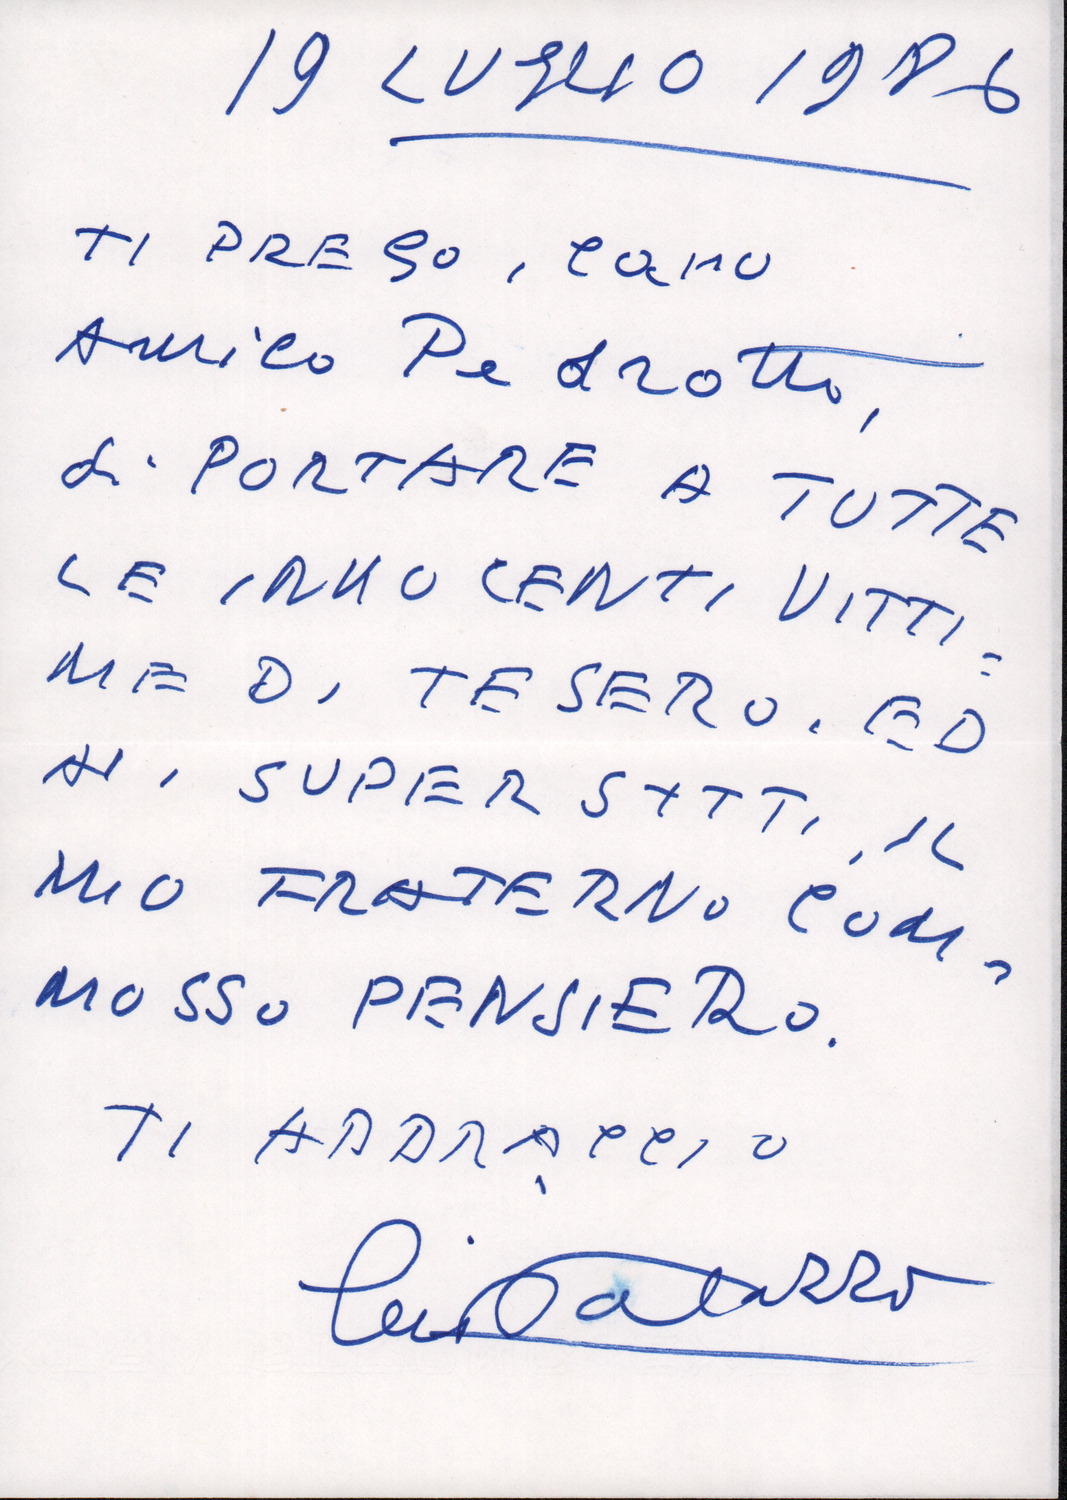 19 LUGLIO 1986
TI PREGO, caro
Amico Pedrotti,
di PORTARE A TUTTE
LE INNOCENTI VITTI=
ME DI TESERO. ED
AI SUPERSTITI, IL
MIO FRATERNO COM=
MOSSO PENSIERO.
TI ABBRACCIO